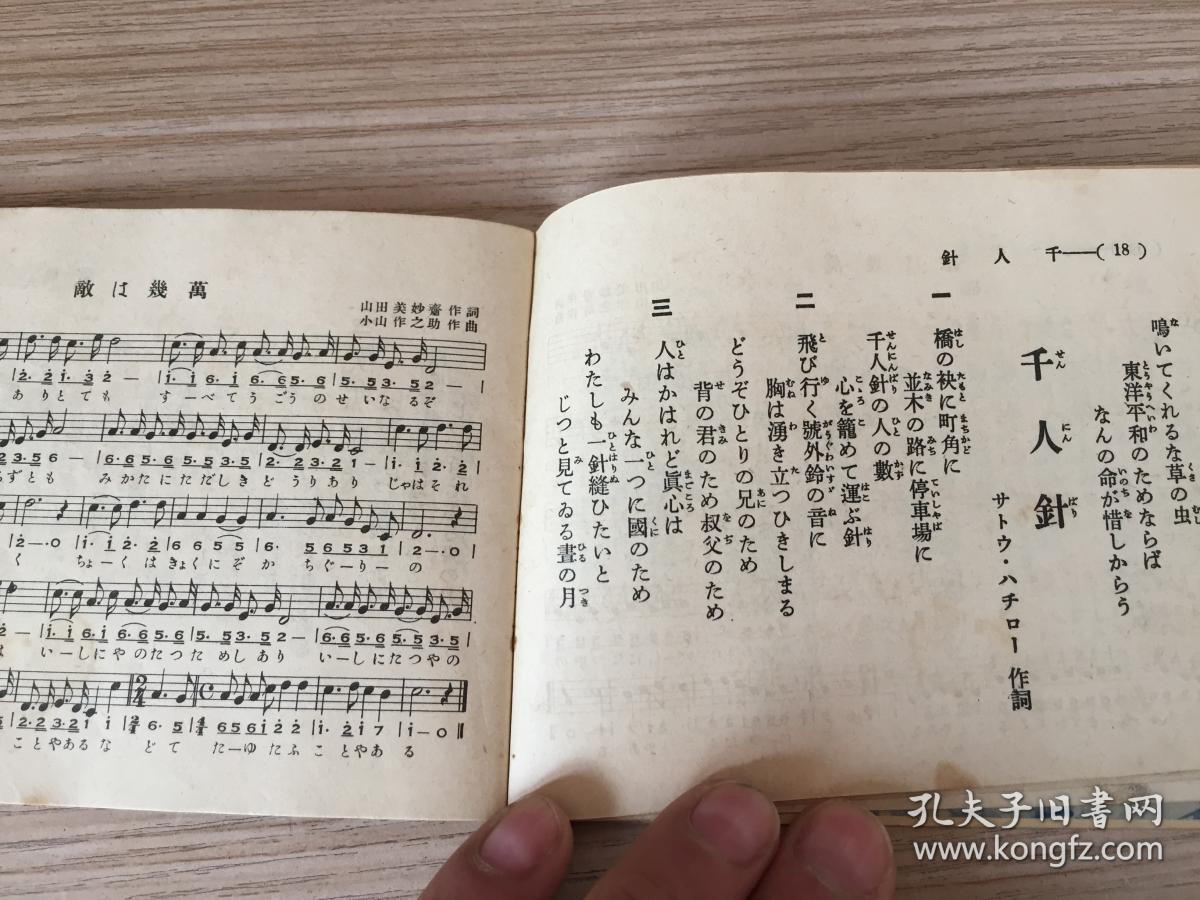 敵は幾萬
山田美妙齋 作詞
小山作之助 作曲
ありとても すーべてうごうのせいなるぞ
ずとも みかたにただしきどうりあり じゃはそれ
く ちょーくはきょくにぞかちぐーりーの
は いーしにやのたつためしあり いーしにたつやの
ことやあるな どてたーゆたふことやある
千人針——(18)
鳴いてくれるな草の虫
東洋平和のためならば
なんの命が惜しからう
千人針
サトウ・ハチロー 作詞
一
橋の袂に町角に
並木の路に停車場に
千人針の人の數
心を籠めて運ぶ針
二
飛び行く號外鈴の音に
胸は湧き立つひきしまる
どうぞひとりの兄のため
背の君のため叔父のため
三
人はかはれど眞心は
みんな一つに國のため
わたしも一針縫ひたいと
じつと見てゐる晝の月
孔夫子旧书网
www.kongfz.com